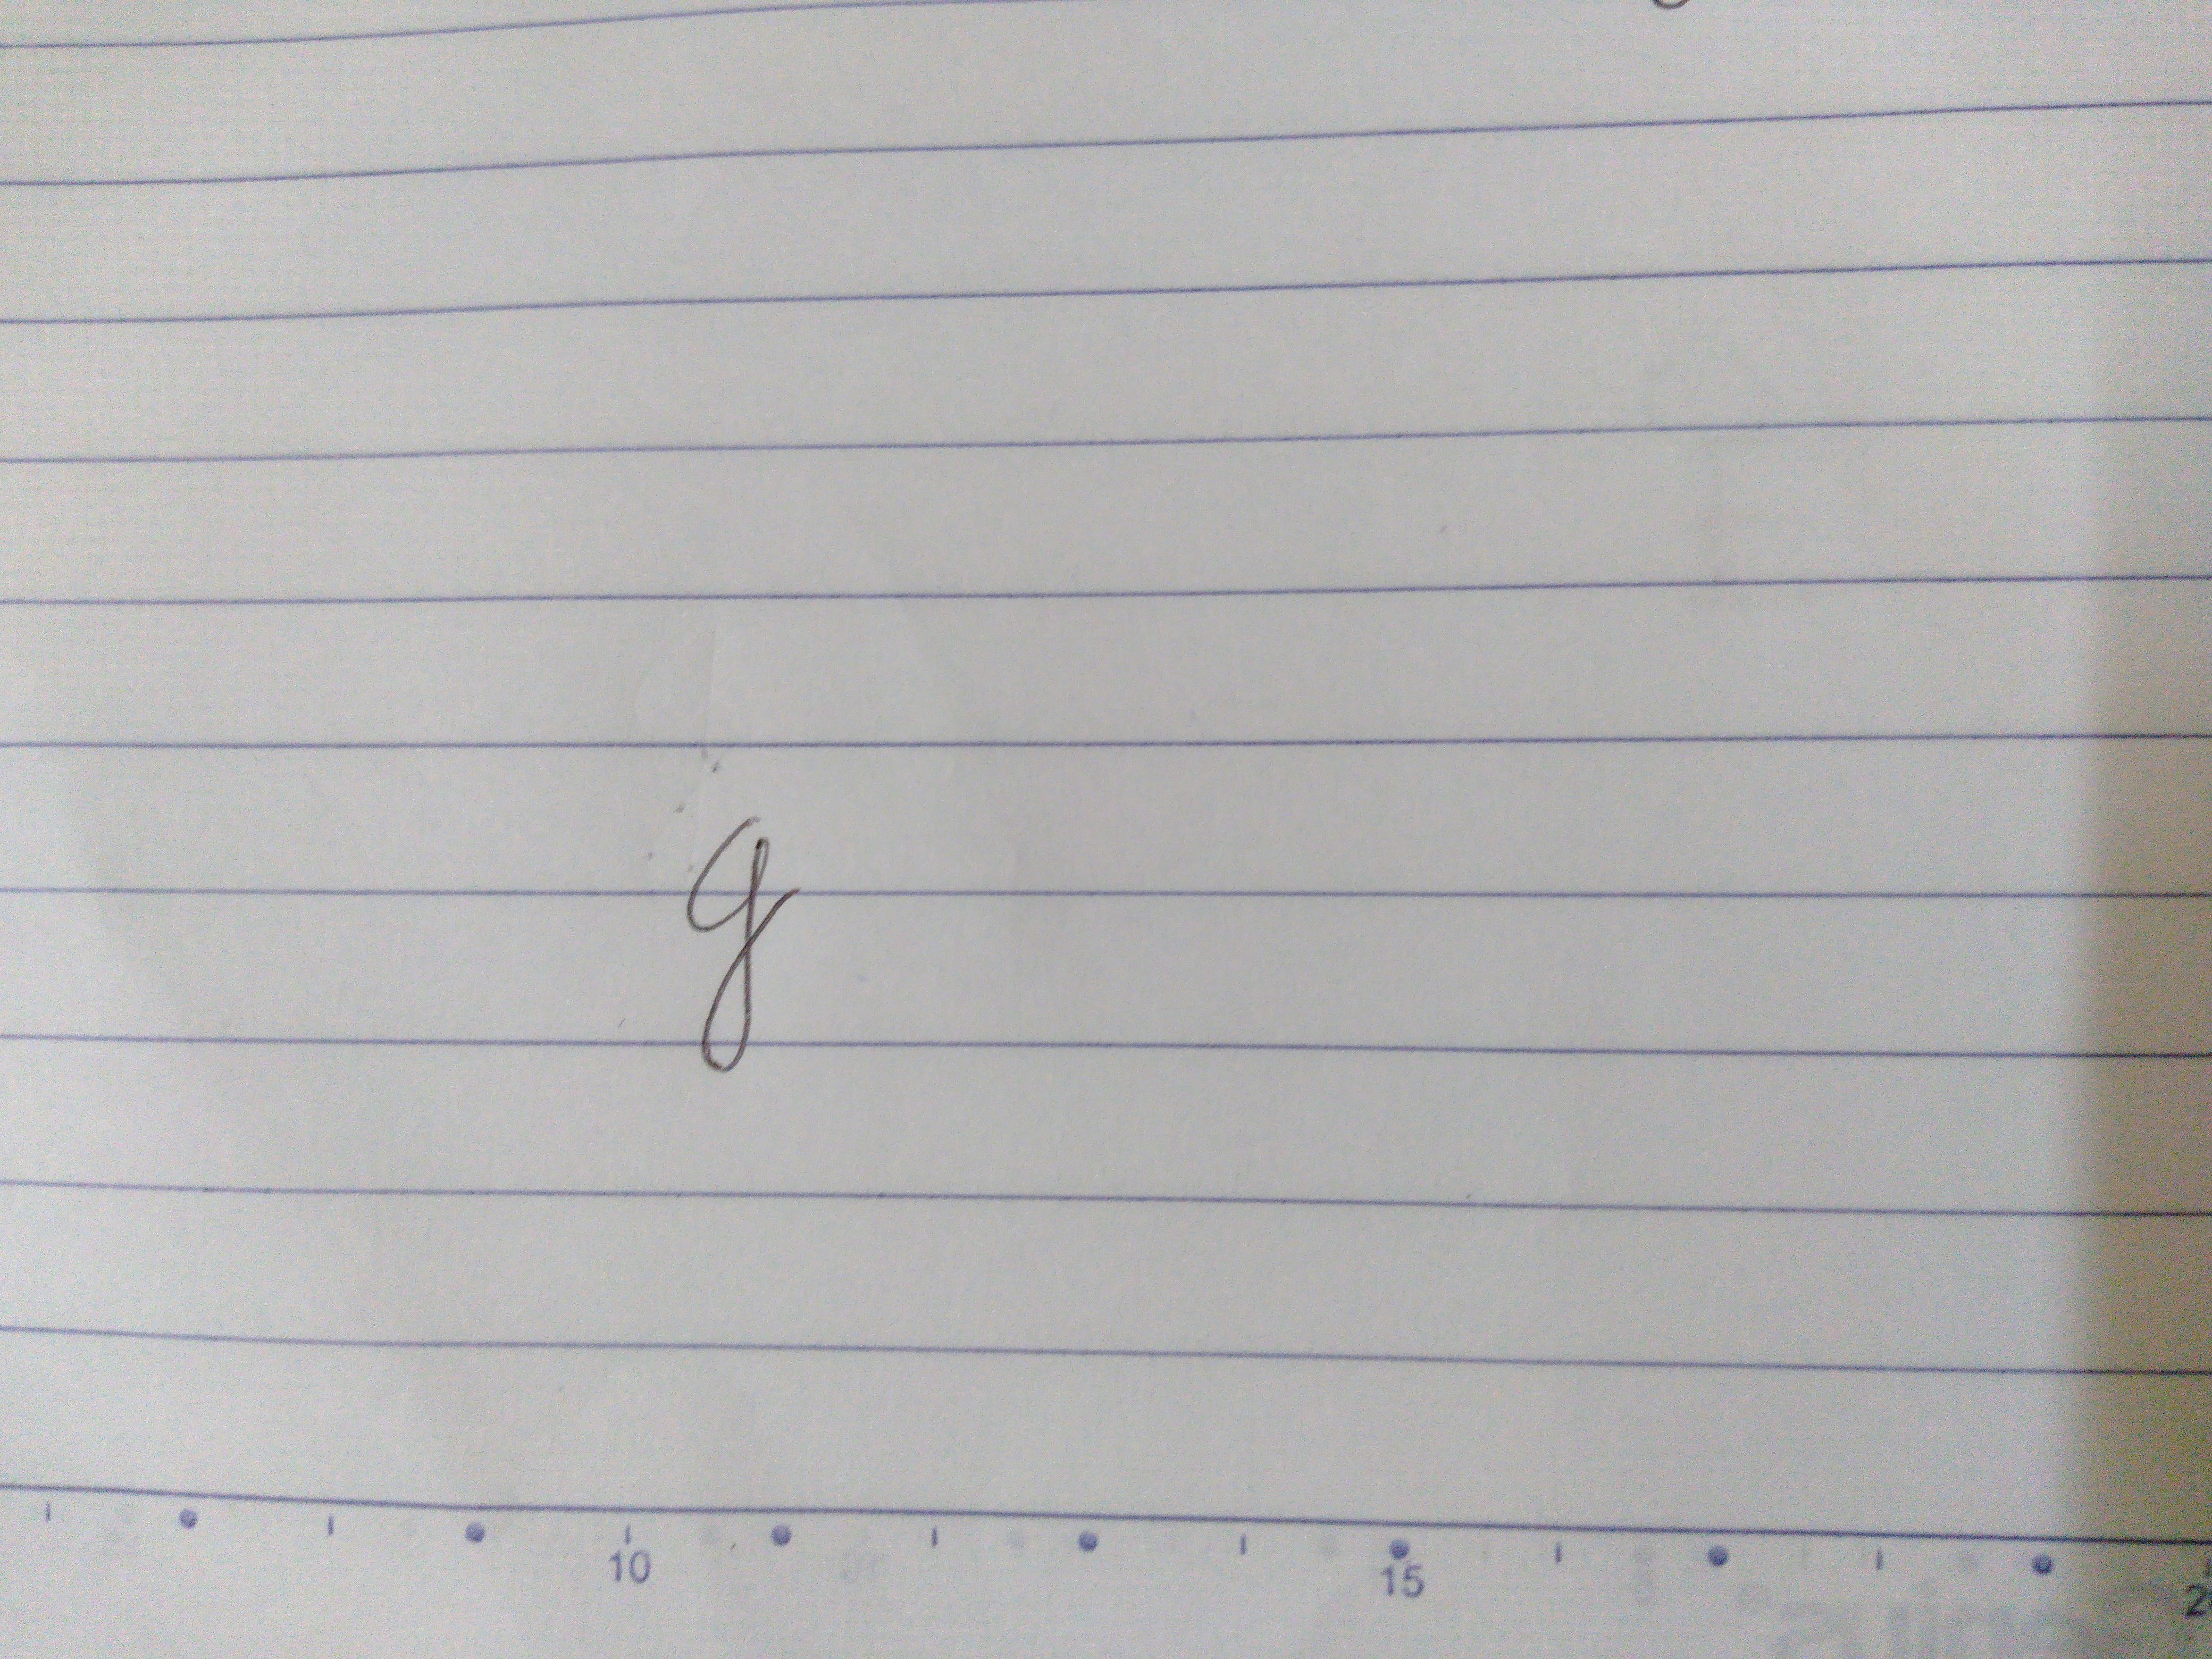 g
10 15